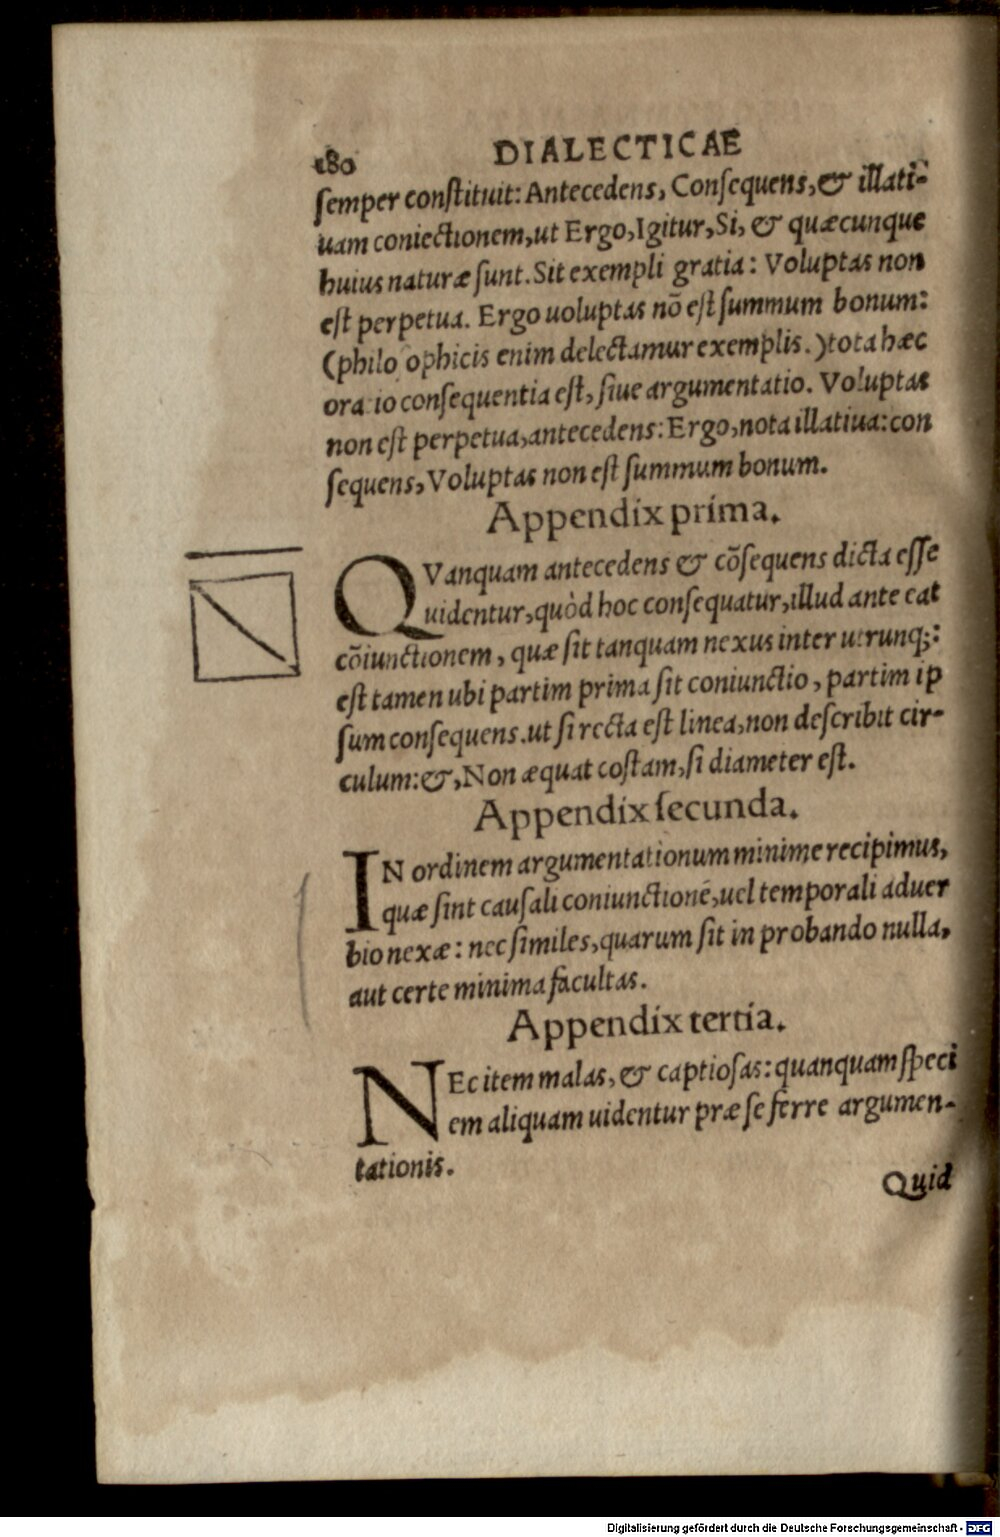 180 DIALECTICAE
semper constituit: Antecedens, Consequens, & illati-
uam coniectionem, ut Ergo, Igitur, Si, & quæcunque
huius naturæ sunt. Sit exempli gratia: Voluptas non
est perpetua. Ergo uoluptas nõ est summum bonum:
(philo ophicis enim delectamur exemplis.) tota hæc
ora io consequentia est, siue argumentatio. Voluptas
non est perpetua, antecedens: Ergo, nota illatiua: con
sequens, Voluptas non est summum bonum.
Appendix prima.
QVanquam antecedens & cõsequens dicta esse
uidentur, quòd hoc consequatur, illud ante eat
cõiunctionem, quæ sit tanquam nexus inter utrunq;:
est tamen ubi partim prima sit coniunctio, partim ip
sum consequens. ut si recta est linea, non describit cir-
culum: &, Non æquat costam, si diameter est.
Appendix secunda.
IN ordinem argumentationum minime recipimus,
quæ sint causali coniunctionẽ, uel temporali aduer
bio nexæ: nec similes, quarum sit in probando nulla,
aut certe minima facultas.
Appendix tertia.
NEc item malas, & captiosas: quanquam speci
em aliquam uidentur præ se ferre argumen-
tationis.
Quid
Digitalisierung gefördert durch die Deutsche Forschungsgemeinschaft - DFG